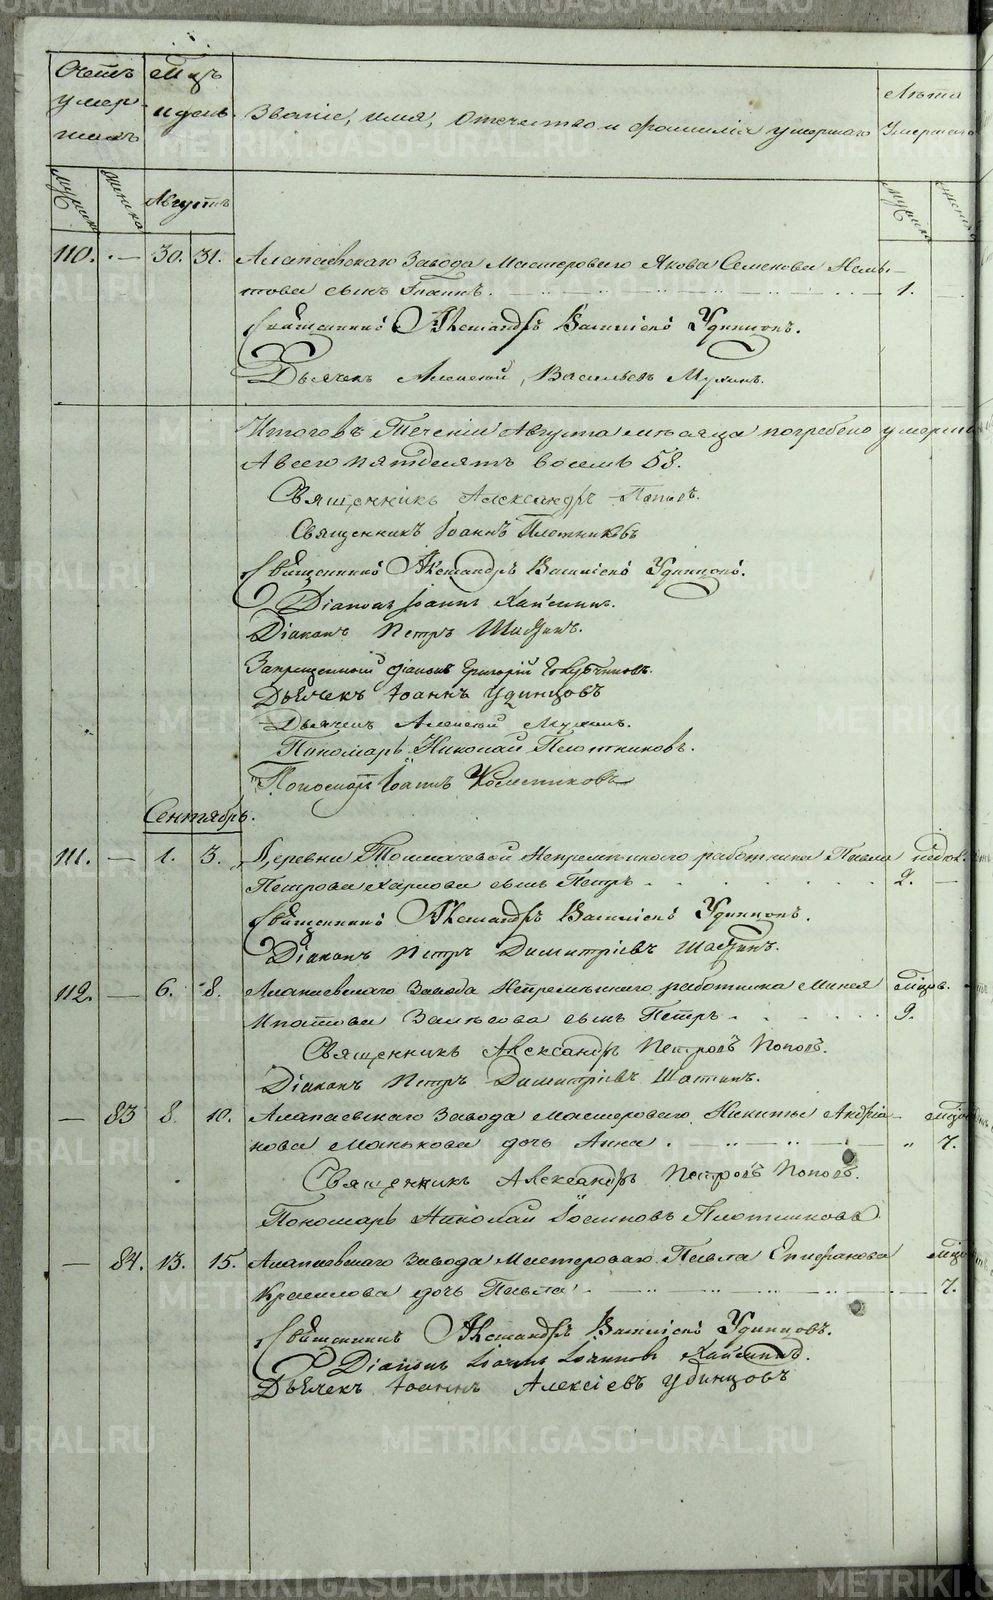 Счетъ умер-шихъ
Мцъ и день.
Званіе, имя, отечество и фамилія умершаго
Лѣта Умершаго
Мужска Женска Августъ Мужска Женска
110. — 30. 31. Алапаевскаго Завода Мастероваго Якова Семенова
това сынъ Іоаннъ. 1.
Священникъ Александръ Василіевъ Удинцовъ.
Дьячекъ Алексѣй Васильевъ Мухинъ.
Итого въ Теченіи Августа мѣсяца погребено умерши
А всего пятдесятъ восемь 58.
Священникъ Александръ Поповъ.
Священникъ Іоаннъ Плотниковъ
Священникъ Александръ Василіевъ Удинцовъ.
Діаконъ Іоаннъ
Діаконъ Петръ Шастинъ.
Запрещенный діаконъ Григорій
Дьячекъ Іоаннъ Удинцовъ
Дьячекъ Алексѣй Мухинъ.
Пономарь Николай Плотниковъ.
Пономарь Іоаннъ
Сентябрь.
111. — 1. 3. Деревни Толмачевой Непремѣннаго работника Павла недѣл.
Петрова Харлова сынъ Петръ 2. —
Священникъ Александръ Василіевъ Удинцовъ.
Діаконъ Петръ Димитріевъ Шастинъ.
112. — 6. 8. Алапаевскаго Завода Непремѣннаго работника Минея мцов.
Ипатова сынъ Петръ 9.
Священникъ Александръ Петровъ Поповъ.
Діаконъ Петръ Димитріевъ Шастинъ.
— 83 8. 10. Алапаевскаго Завода Мастероваго Никиты Андріа- мцов
нова Манькова дочь Анна 7.
Священникъ Александръ Петровъ Поповъ.
Пономарь Николай Іосифовъ Плотниковъ
— 84. 13. 15. Алапаевскаго Завода Мастероваго Павла Епифанова мцов
дочь Павла 7.
Священникъ Александръ Василіевъ Удинцовъ.
Діаконъ Іоаннъ Іоанновъ
Дьячекъ Іоаннъ Алексіевъ Удинцовъ
METRIKI.GASO-URAL.RU